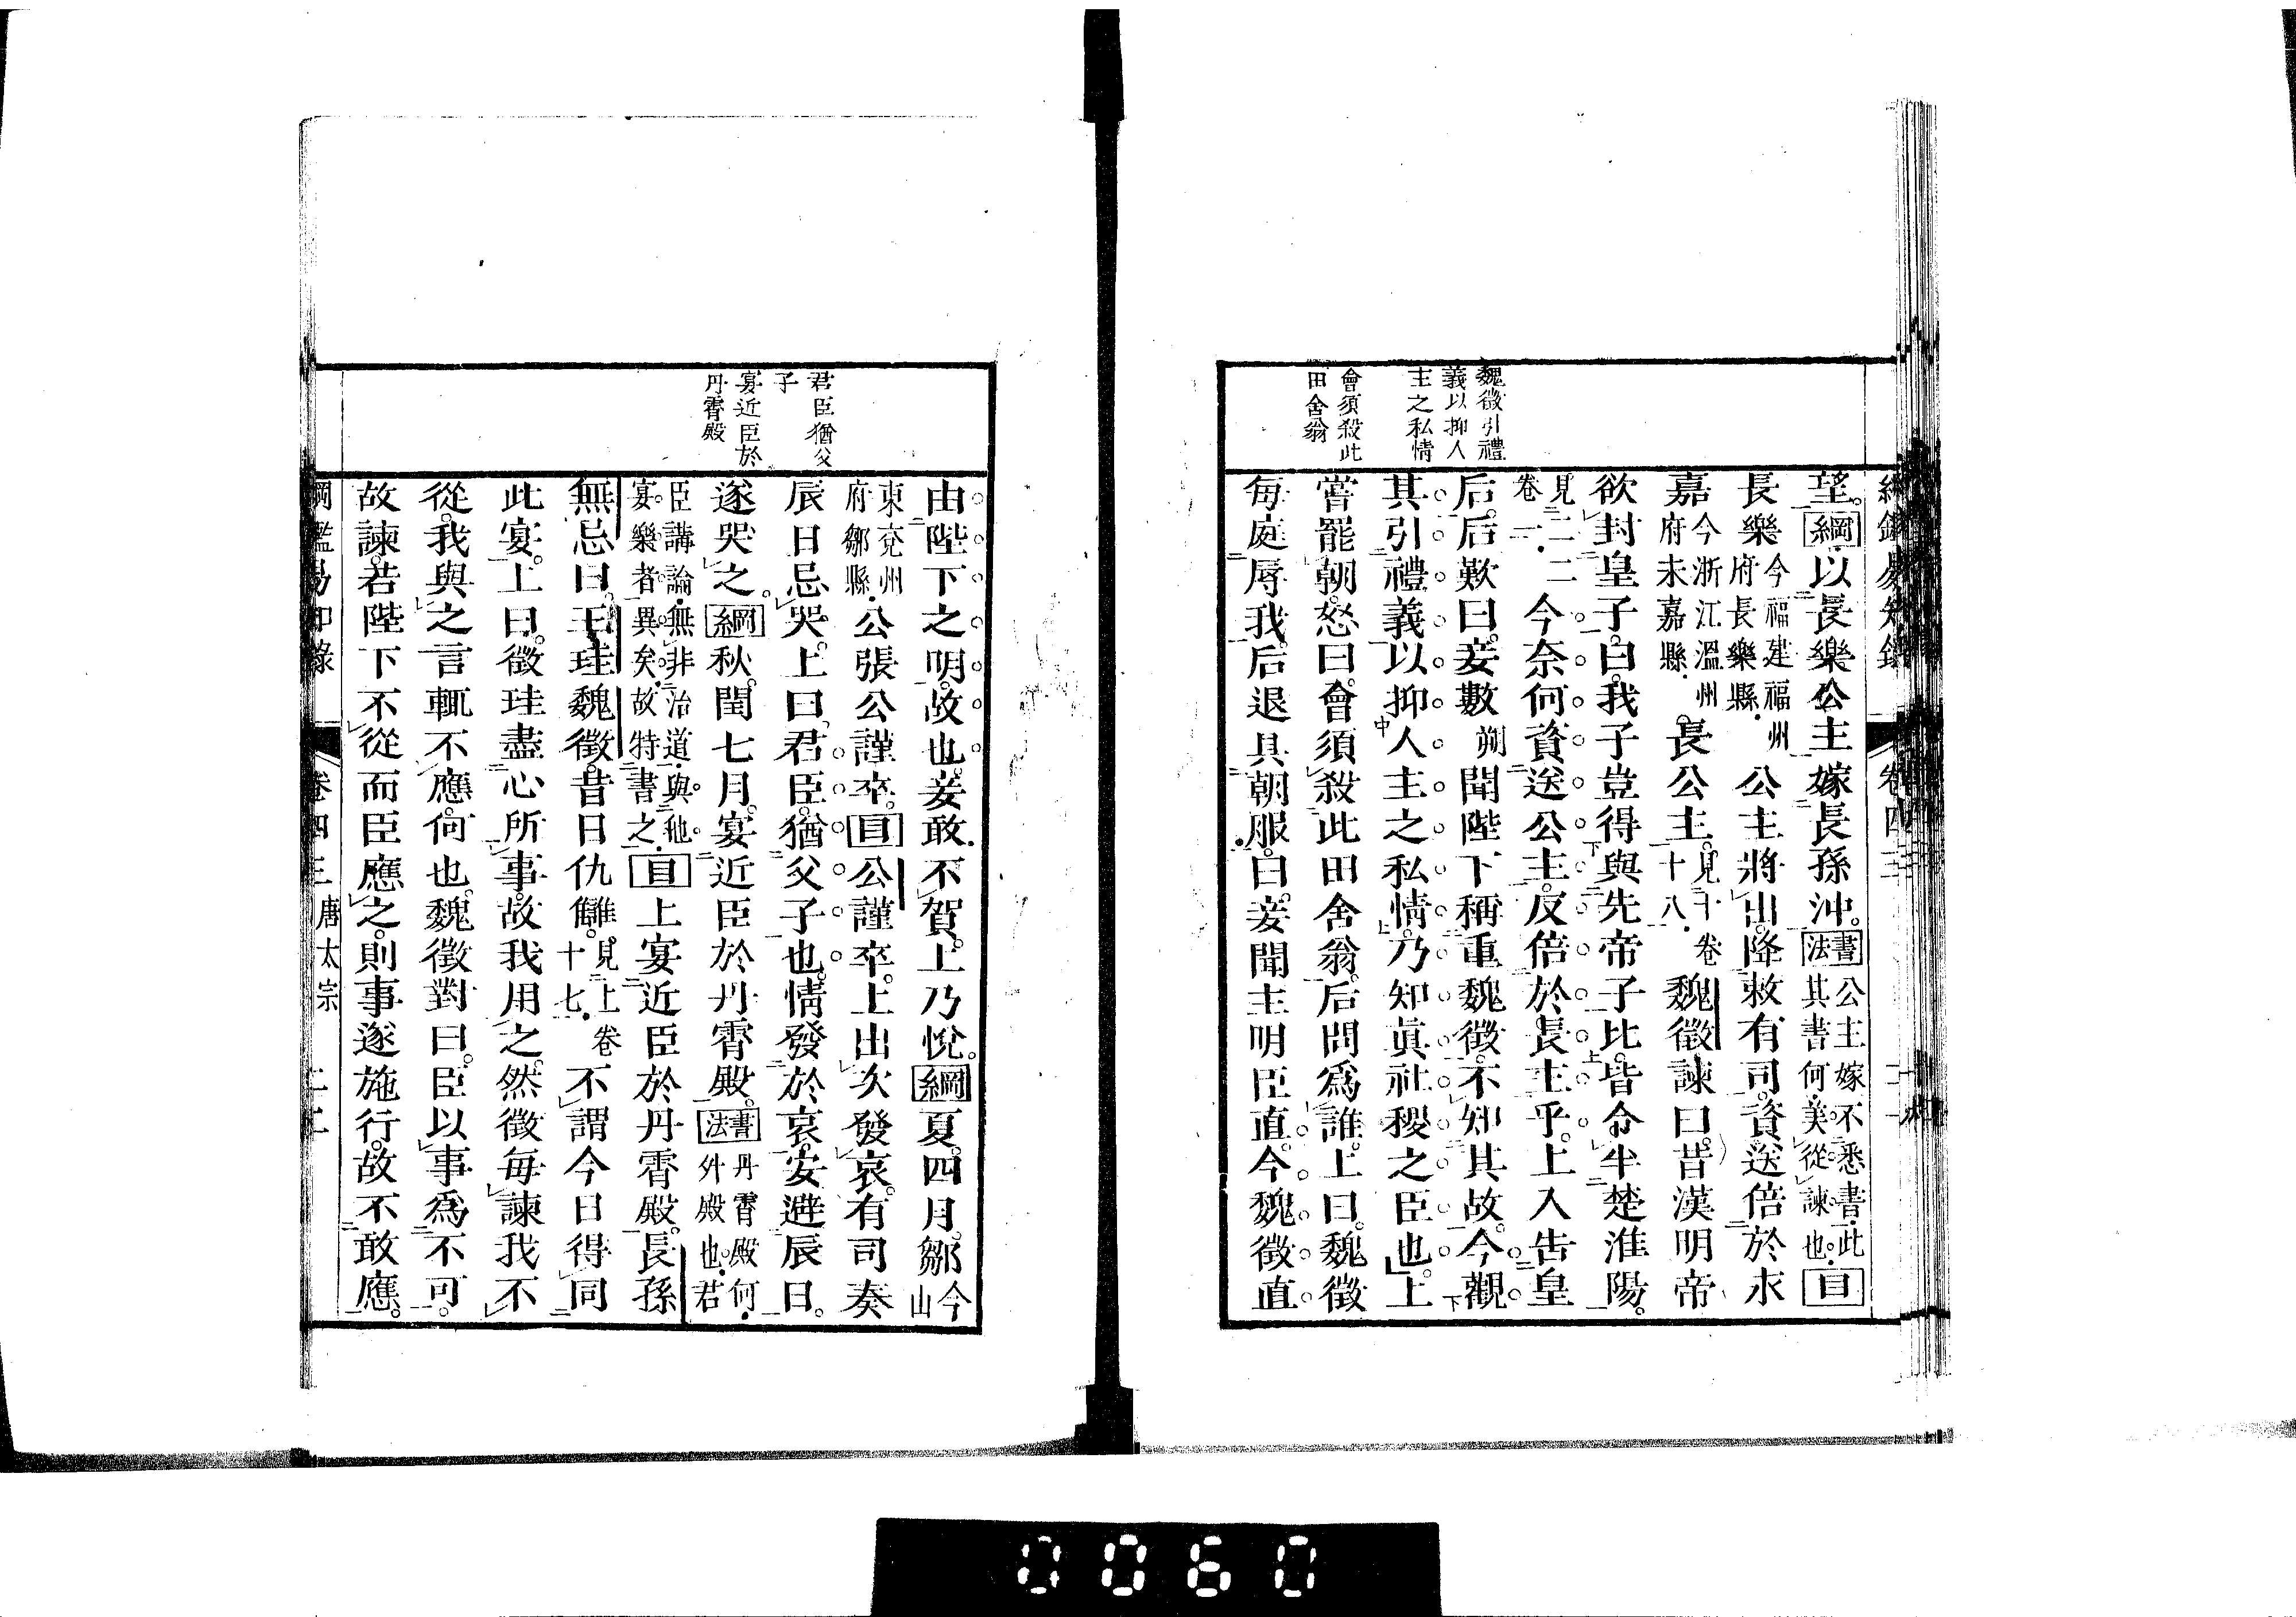 魏徵引禮
義以抑人
主之私情
會須殺此
田舍翁
望。綱以長樂公主嫁長孫沖。書法公主嫁不悉書此其書何美從諫也。目
長樂今福建福州府長樂縣公主將出降。敕有司資送倍於永
嘉今浙江溫州府永嘉縣長公主。見十卷十八魏徵諫曰昔漢明帝
欲封皇子曰。我子豈得與先帝子比。皆令半楚淮陽。
見二二卷一二今奈何資送公主。反倍於長主乎。上入告皇
后。后歎曰。妾數朔聞陛下稱重魏徵。不知其故。今觀
其引禮義以抑人主之私情。乃知眞社稷之臣也。上
嘗罷朝。怒曰。會須殺此田舍翁。后問爲誰。上曰。魏徵
每庭辱我。后退具朝服。曰。妾聞主明臣直。今魏徵直。
君臣猶父
子
宴近臣於
丹霄殿
由陛下之明故也。妾敢不賀。上乃悅。綱夏四月。鄒今山
東兗州府鄒縣公張公謹卒。目公謹卒。上出次發哀。有司奏
辰日忌哭。上曰。君臣猶父子也。情發於哀。安避辰日。
遂哭之。綱秋閏七月。宴近臣於丹霄殿。書法丹霄殿何。外殿也。君
臣講論無非治道與他宴樂者異矣故特書之目上宴近臣於丹霄殿。長孫
無忌曰。王珪魏徵。昔日仇讎。見上卷十七不謂今日得同
此宴。上曰。徵珪盡心所事。故我用之。然徵每諫我不
從。我與之言輒不應。何也。魏徵對曰。臣以事爲不可。
故諫。若陛下不從而臣應之。則事遂施行。故不敢應。
綱鑑易知錄 卷四三 唐太宗 二二